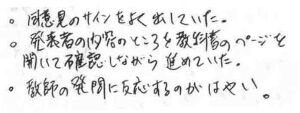 。同意見のサインをよく出していた。
。発表者の内容のところを教科書のページを
開いて確認しながら進めていた。
。教師の発問に反応するのがはやい。